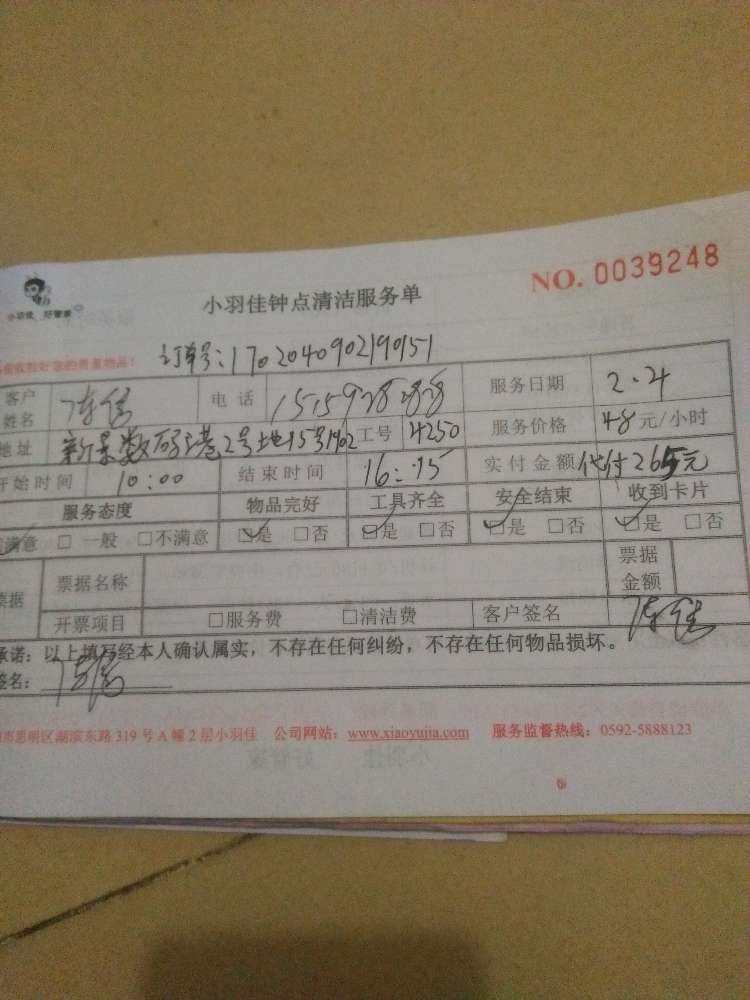 小羽佳 好管家
NO. 0039248
小羽佳钟点清洁服务单
订单号:1702040902190151
客户姓名 电话 服务日期 2.4
地址 新景数码港2号地15号1902 工号 4250 服务价格 48元/小时
开始时间 10:00 结束时间 16:15 实付金额 代付265元
服务态度 物品完好 工具齐全 安全结束 收到卡片
满意 □ 一般 □不满意 ☑是 □否 ☑是 □否 ☑是 □否 ☑是 □否
票据 票据名称 票据金额
开票项目 □服务费 □清洁费 客户签名
承诺:以上填写经本人确认属实,不存在任何纠纷,不存在任何物品损坏。
签名:
市思明区湖滨东路319号A幢2层小羽佳 公司网站:www.xiaoyujia.com 服务监督热线:0592-5888123